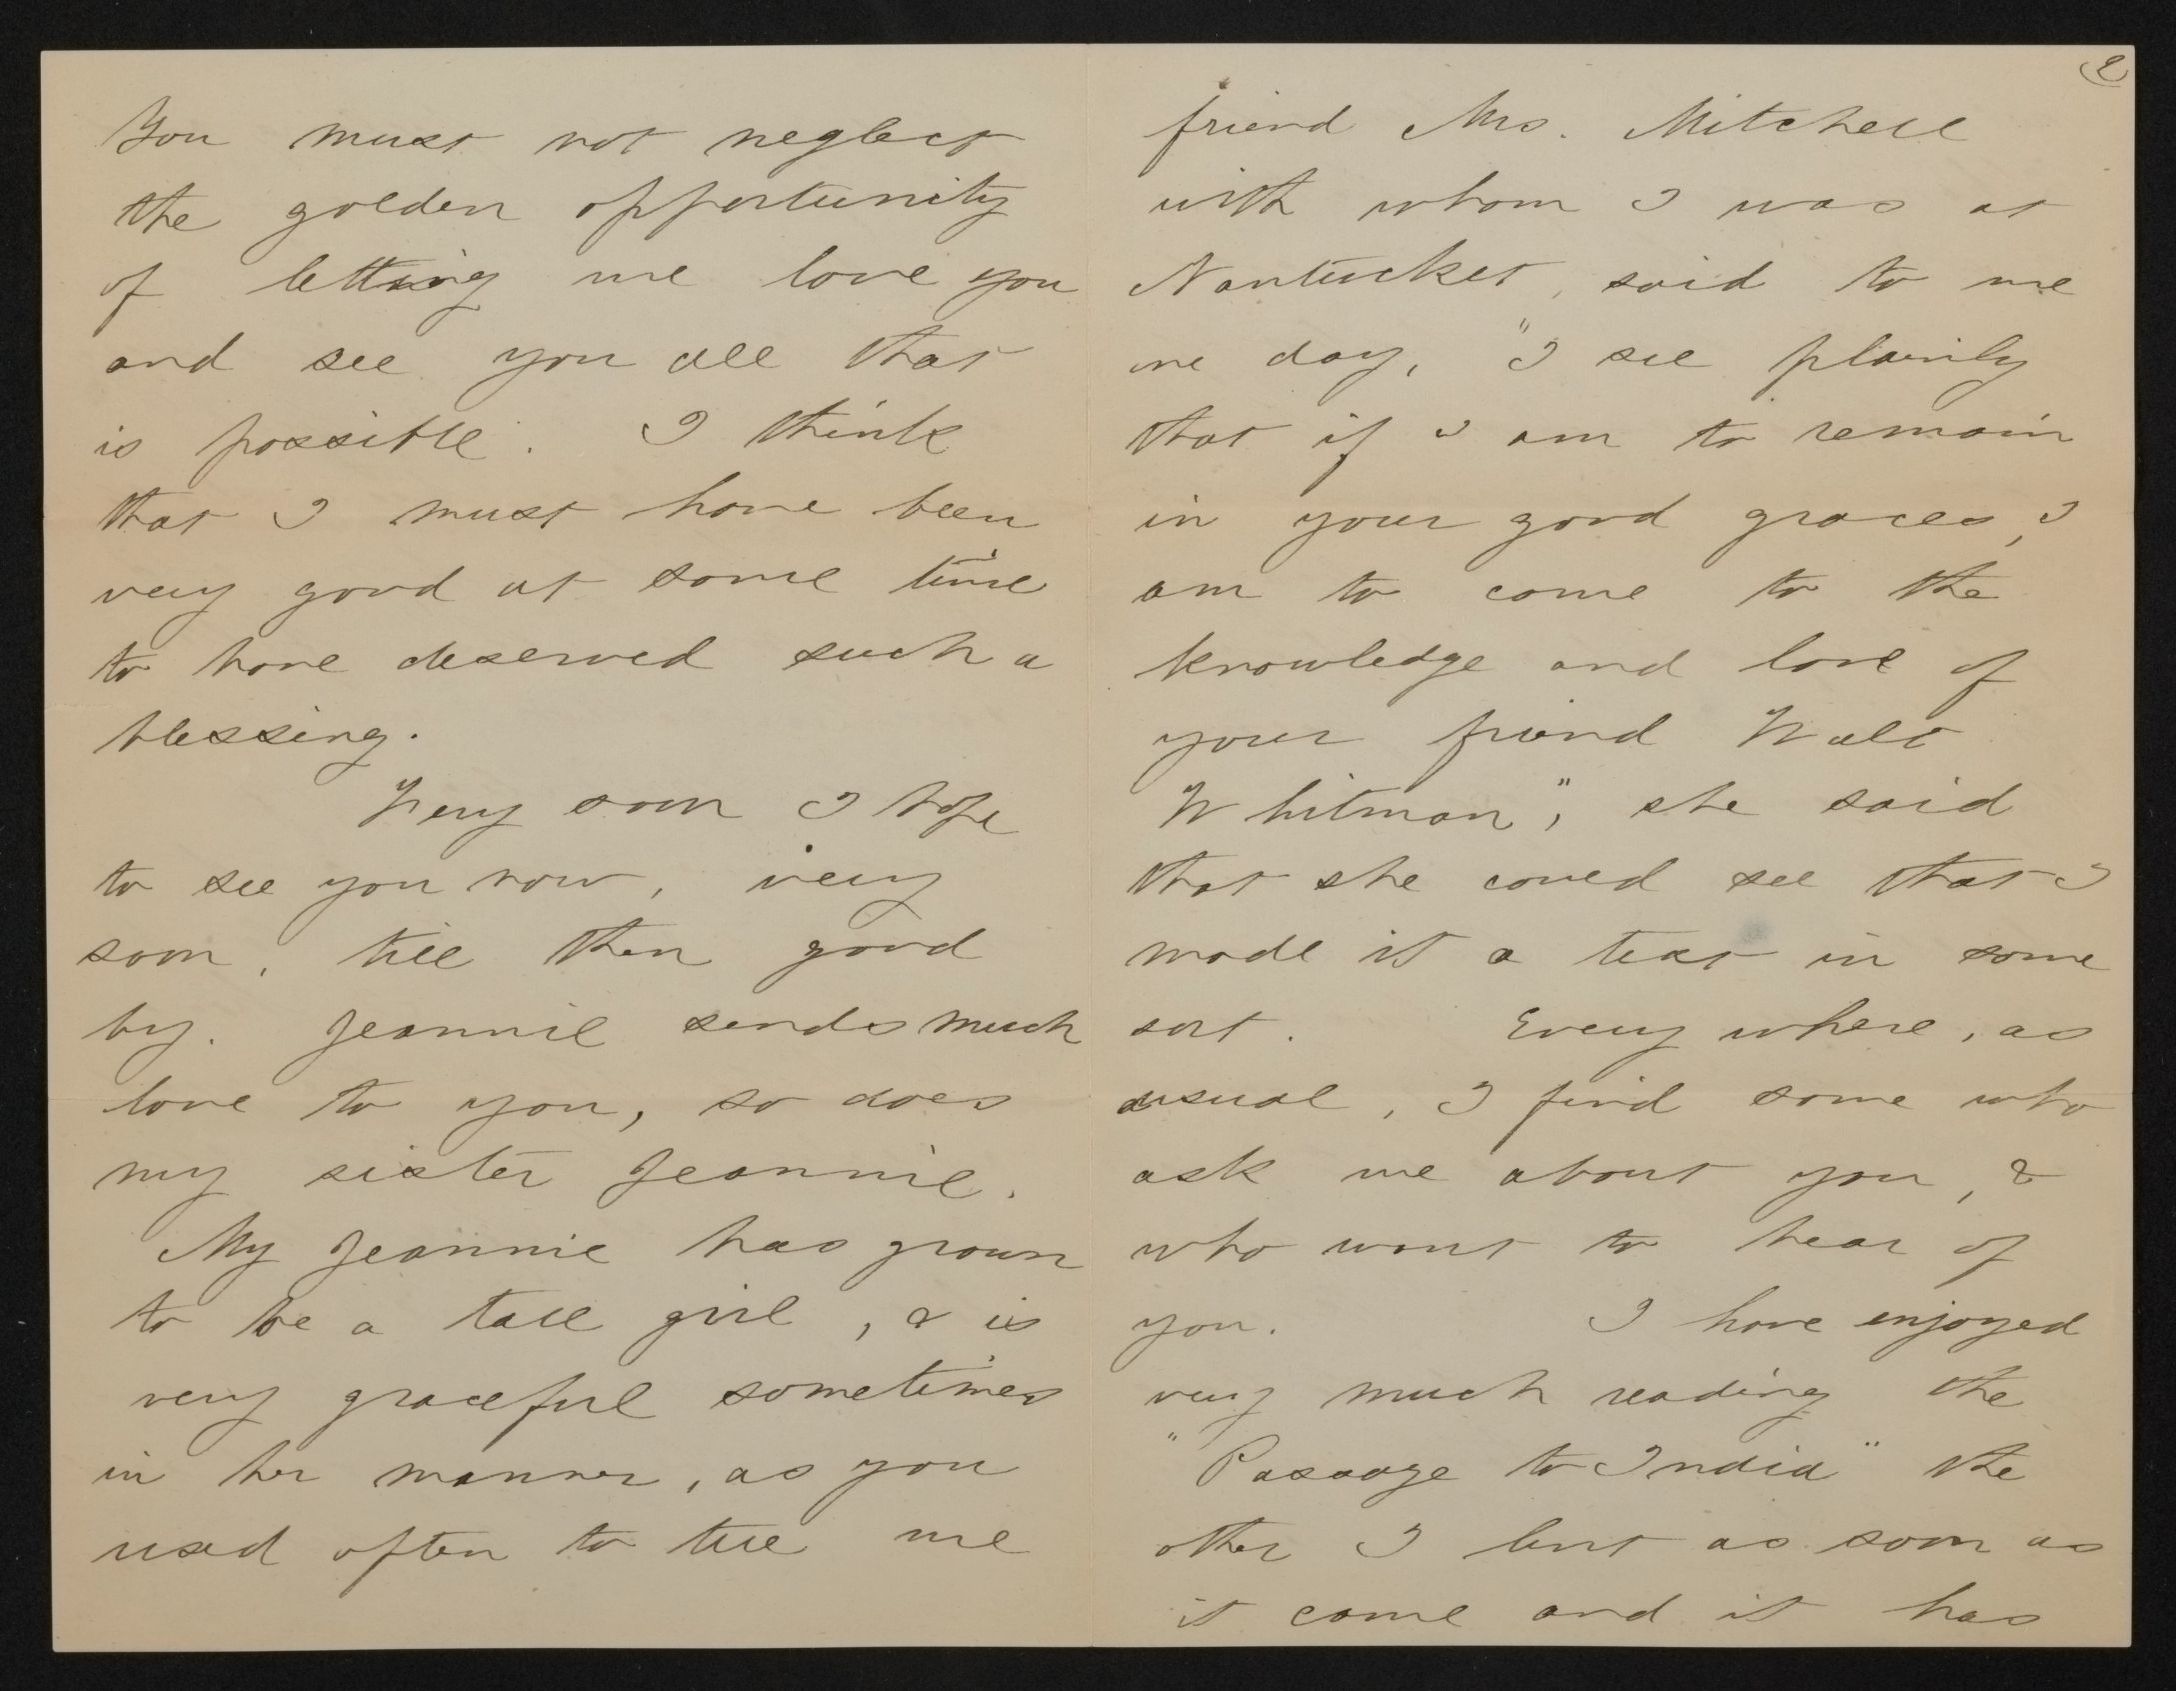 You must not neglect
the golden opportunity
of letting me love you
and see you all that
is possible. I think
that I must have been
very good at some time
to have deserved such a
blessing.
Very soon I hope
to see you now, very
soon, till then good
by. Jeannie sends much
love to you, so does
my sister Jeannie.
My Jeannie has grown
to be a tall girl, & is
very graceful sometimes
in her manner, as you
used often to tell me
2
friend Mrs. Mitchell
with whom I was at
Nantucket, said to me
one day, "I see plainly
that if I am to remain
in your good graces, I
am to come to the
knowledge and love of
your friend Walt
Whitman", she said
that she could see that I
made it a test in some
sort. Every where, as
usual, I find some who
ask me about you, &
who want to hear of
you. I have enjoyed
very much reading the
"Passage to India" the
other I lent as soon as
it came and it has